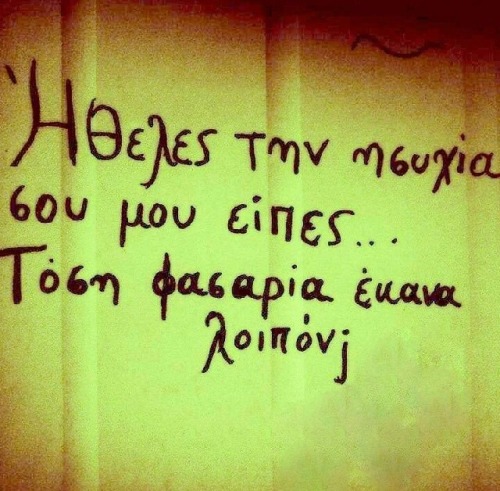 Ήθελες την ησυχία
σου μου είπες...
Τόση φασαρία έκανα
λοιπόν;